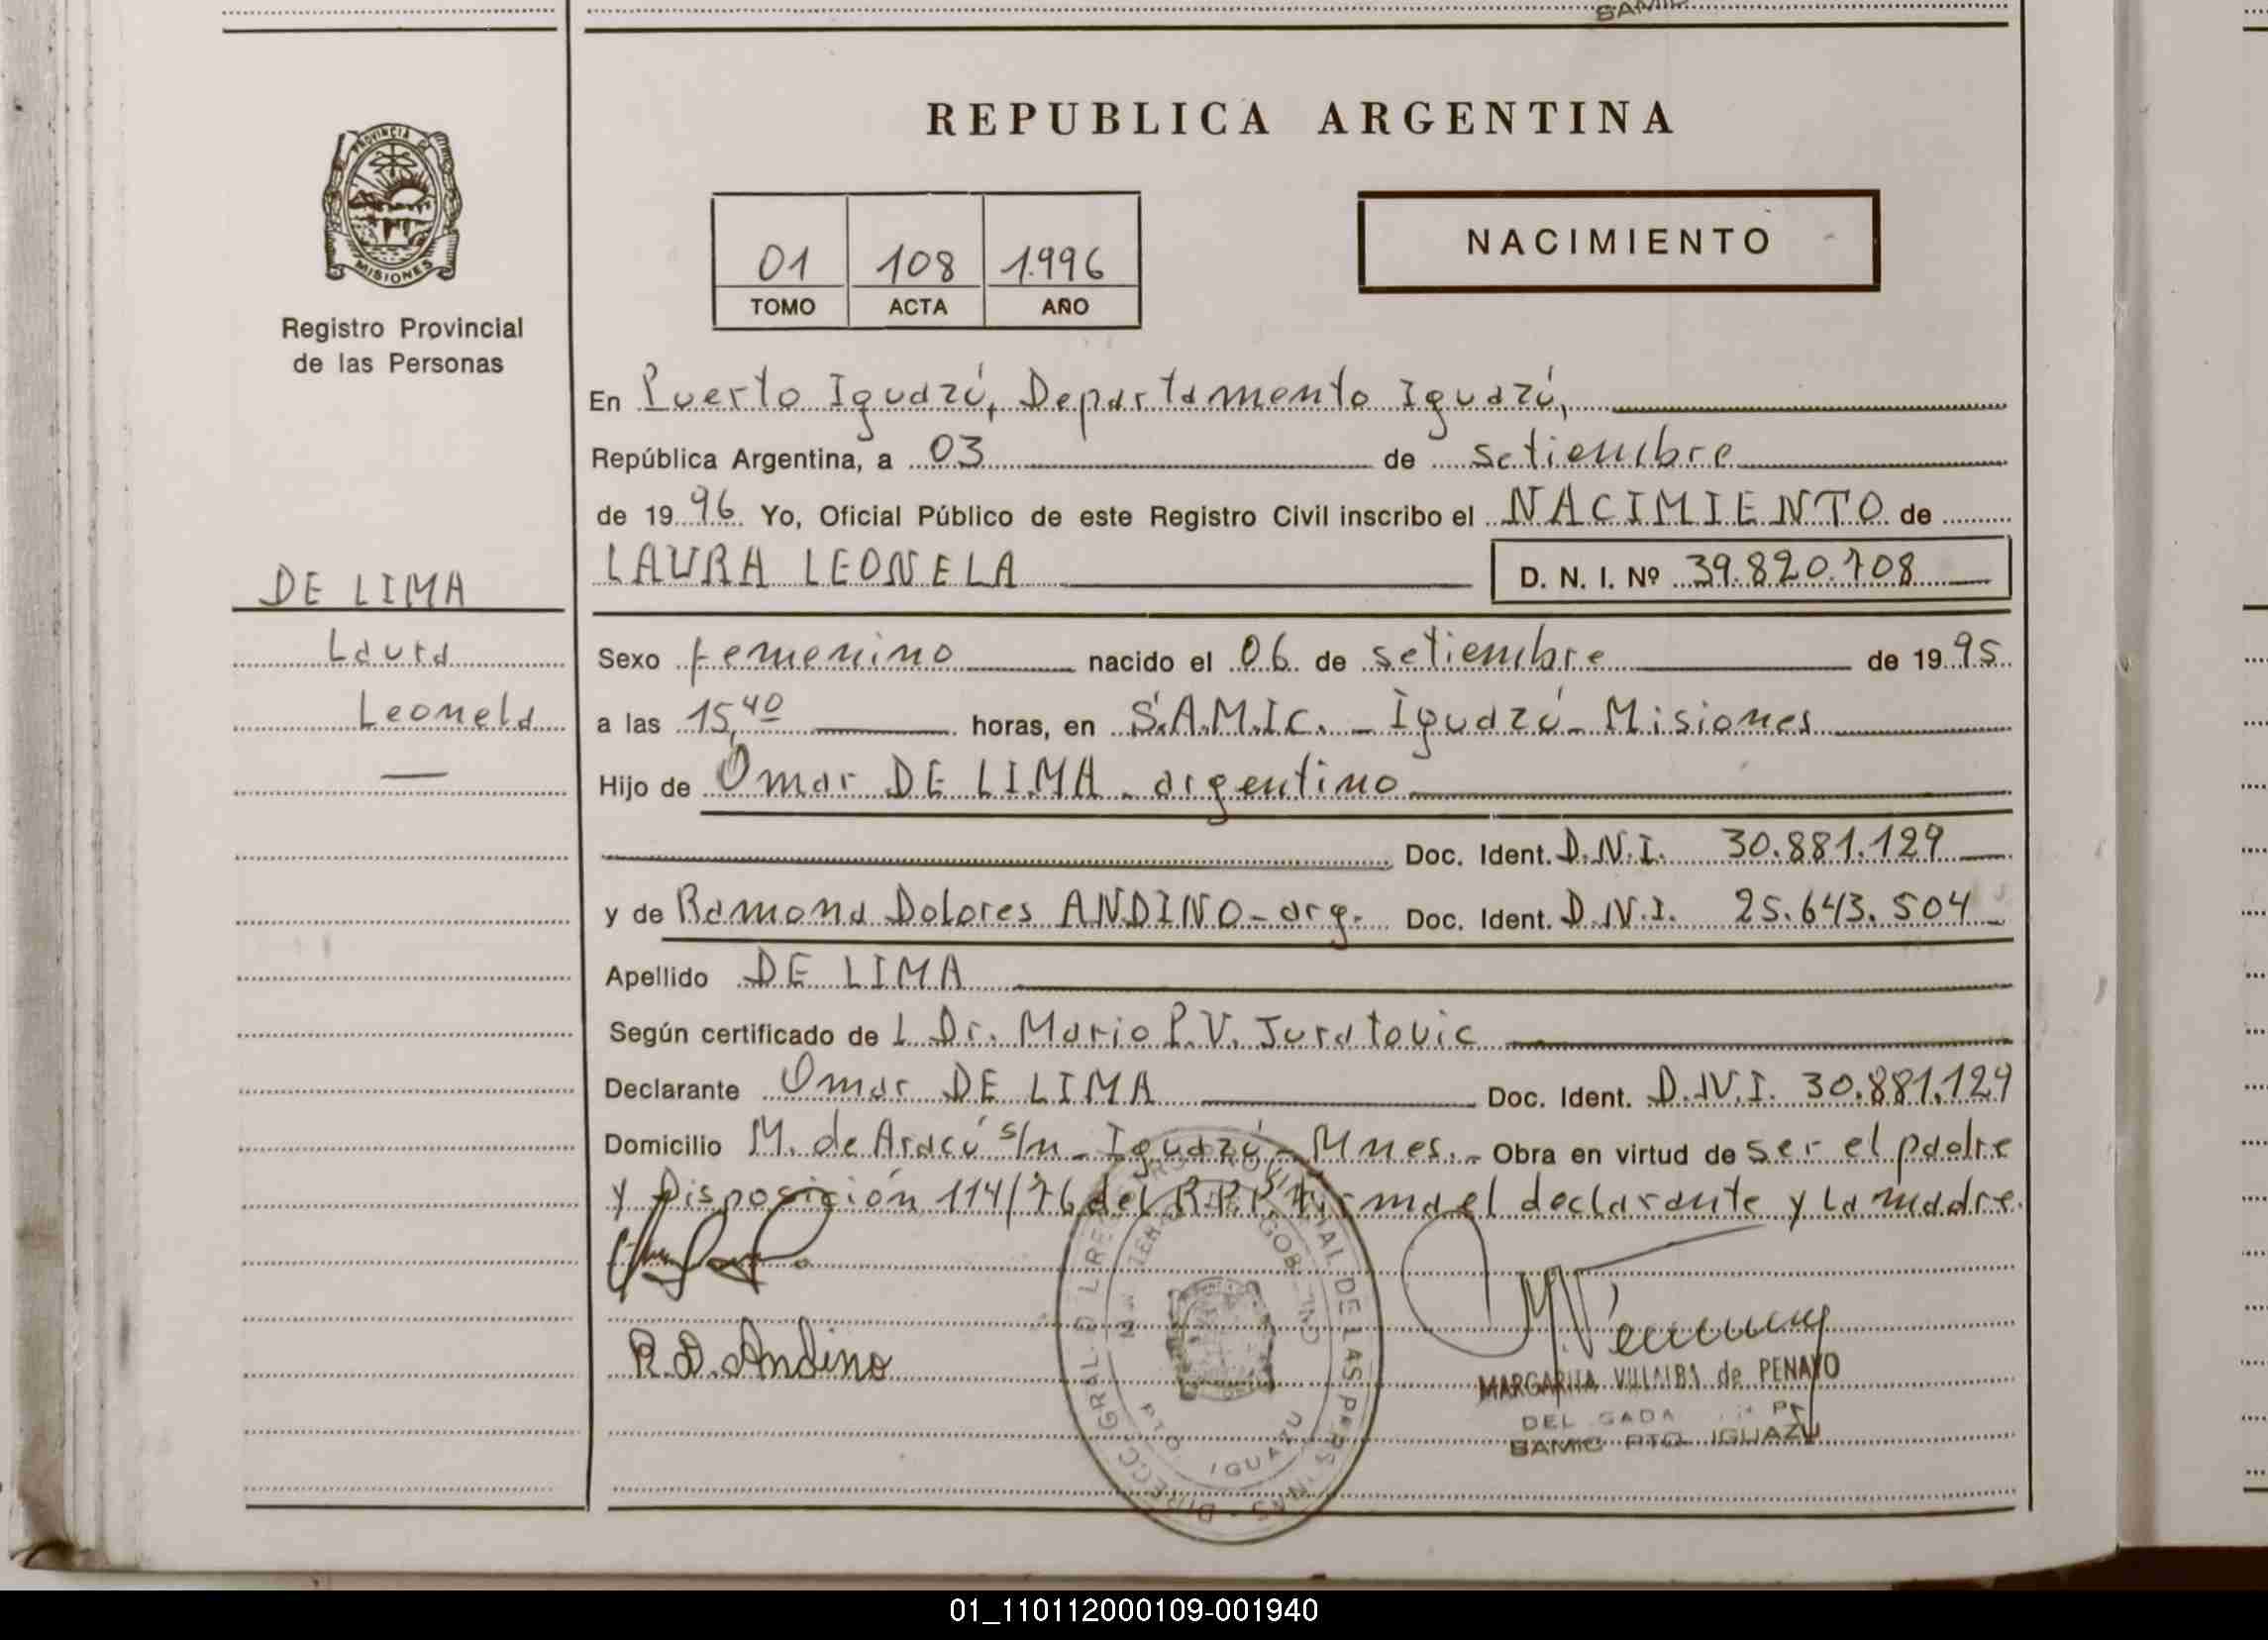 SAMIC
REPUBLICA ARGENTINA
PROVINCIA DE
MISIONES
Registro Provincial
de las Personas
01 108 1.996
TOMO ACTA AÑO
NACIMIENTO
En Puerto Iguazú, Departamento Iguazú,
República Argentina, a 03 de setiembre
de 1996. Yo, Oficial Público de este Registro Civil inscribo el NACIMIENTO de
LAURA LEONELA D. N. I. Nº 39.820.108
DE LIMA
Laura
Leonela
Sexo femenino nacido el 06 de setiembre de 1995
a las 15,40 horas, en S.A.M.I.C. - Iguazú - Misiones
Hijo de Omar DE LIMA - argentino
Doc. Ident. D.N.I. 30.881.129
y de Ramona Dolores ANDINO - arg. Doc. Ident. D.N.I. 25.643.504
Apellido DE LIMA
Según certificado de l Dr. Mario P. V. Juratovic
Declarante Omar DE LIMA Doc. Ident. D.N.I. 30.881.129
Domicilio M. de Aracú s/n - Iguazú - Mnes. - Obra en virtud de ser el padre
y Disposición 114/76 del R.P.P. firma el declarante y la madre.
R. D. Andino
MARGARITA VILLALBA de PENAYO
SAMIC PTO. IGUAZU
DE LAS
PTO. IGUAZU
01_110112000109-001940